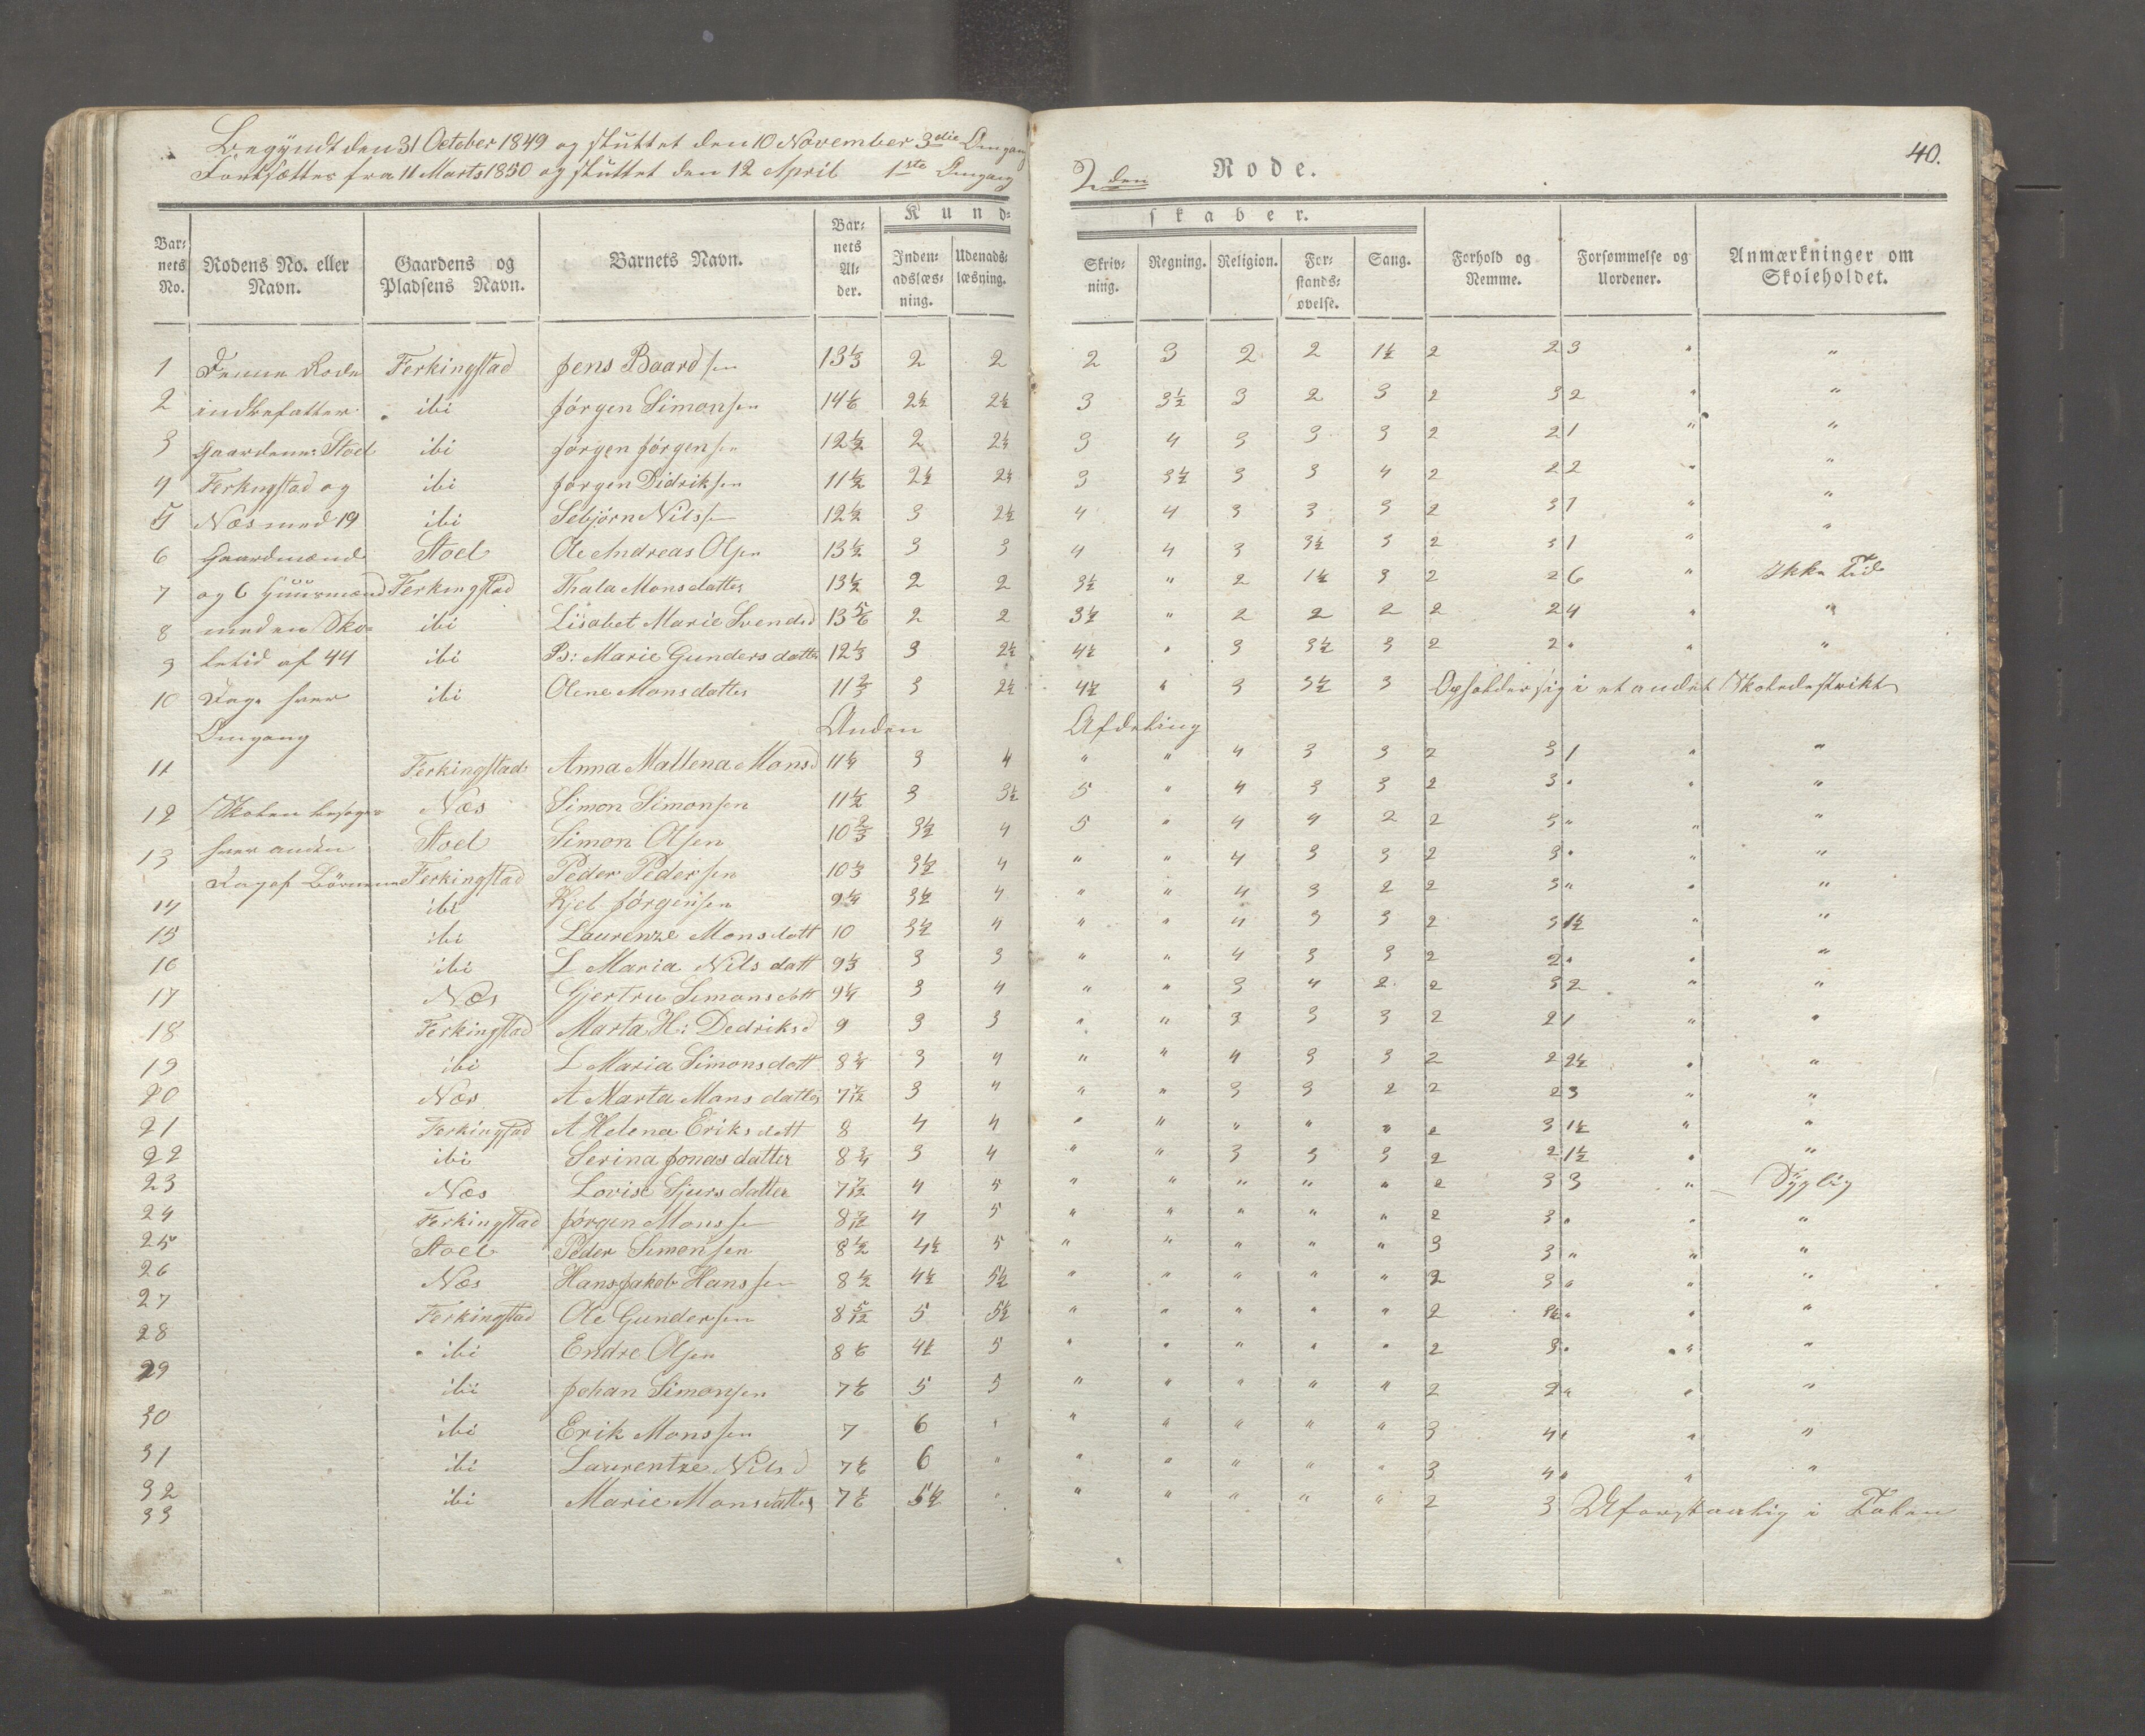 Begÿndt den 31 October 1849 og sluttet den 10 November 3die Omgang
Fortsættes fra 11 Marts 1850 og sluttet den 12 April 1ste Omgang
2den Rode.
40.
Kundskaber.
Barnets No. | Rodens No. eller Navn. | Gaardens og Pladsens Navn. | Barnets Navn. | Barnets Alder. | Indenadslæsning. | Udenadslæsning. | Skrivning. | Regning. | Religion. | Forstandsøvelse. | Sang. | Forhold og Nemme. | Forsømmelse og Uordener. | Anmærkninger om Skoleholdet.
1 Denne Rode Ferkingstad Jens Baardsen 13 1/3 2 2 2 3 2 2 1½ 2 2 3 " "
2 indbefatter ibi Jörgen Simonsen 14 1/6 2½ 2½ 3 3½ 3 2 3 2 3 2 " "
3 Gaardene: Stoel ibi Jörgen Jörgensen 12½ 2 2½ 3 4 3 3 3 2 2 1 " "
4 Ferkingstad og ibi Jörgen Didriksen 11½ 2½ 2½ 3 3½ 3 3 4 2 2 2 " "
5 Næs med 19 ibi Sebjörn Nilssen 12½ 3 2½ 4 4 3 3 3 2 3 1 " "
6 Gaardmænd Stoel Ole Andreas Olsen 13½ 3 3 4 4 3 3½ 3 2 3 1 " "
7 og 6 Huusmænd Ferkingstad Thala Monsdatter 13½ 2 2 3½ " 2 1½ 3 2 2 6 " Ikke Tid
8 med en Sko- ibi Lisabet Marie Svendsd 13 5/6 2 2 3½ " 2 2 2 2 2 4 " "
9 letid af 44 ibi B: Marie Gundersdatter 12 1/3 3 2½ 4½ " 3 3½ 3 2 2 " " "
10 Dage hver ibi Olene Monsdatter 11 2/3 3 2½ 4½ " 3 3½ 3 Opholder sig i et andet Skoledestrikt
Omgang Anden Afdeling
11 Ferkingstad Anna Mallena Monsd 11¼ 3 4 " " 4 3 3 2 3 1 " "
12 Skolen besøges Næs Simon Simonsen 11½ 3 3½ 5 " 4 3 3 2 3 " " "
13 hver anden Stoel Simon Olsen 10 2/3 3½ 4 5 " 4 4 2 2 3 " " "
14 Dag af Börnene Ferkingstad Peder Pedersen 10 1/3 3½ 4 " " 4 3 3 2 3 " " "
15 ibi Kjel Jörgensen 9¼ 3½ 4 " " 4 3 2 2 3 " " "
16 ibi Laurenze Monsdatt 10 3½ 4 " " 4 3 3 2 3 1½ " "
17 ibi L Maria Nilsdatt 9 1/3 3 3 " " 4 3 3 2 2 " " "
18 Næs Gjertru Simonsdatt 9¼ 3 4 " " 3 4 2 2 3 2 " "
19 Ferkingstad Marta H: Dedriksd 9 3 3 " " 3 3 3 2 2 1 " "
20 ibi L Maria Simonsdatt 8¾ 3 4 " " 4 3 3 2 2 2½ " "
21 Næs A Marta Mons datter 7 7/12 3 4 " " 3 3 2 2 2 3 " "
22 Ferkingstad A Helena Eriksdatt 8 4 4 " " " " " 2 3 1½ " "
23 ibi Serina Jonasdatter 8¾ 3 4 " " 3 3 3 2 2 1½ " "
24 Næs Lovise Sjursdatter 7 7/12 4 5 " " " " " 2 3 3 " Sÿglig
25 Ferkingstad Jörgen Monssen 8 7/12 4 5 " " " " " 2 3 " " "
26 Stoel Peder Simonsen 8½ 4½ 5 " " " " " 3 3 " " "
27 Næs Hans Jakob Hanssen 8½ 4½ 5½ " " " " " 2 3 " " "
28 Ferkingstad Ole Gundersen 8 5/12 5 5½ " " " " " 2 3½ " " "
29 ibi Endre Olsen 8 1/6 4½ 5 " " " " " 2 3 " " "
30 ibi Johan Simonsen 7 1/6 5 5 " " " " " 2 2 " " "
31 ibi Erik Monssen 7 6 " " " " " " 3 4 " " "
32 ibi Laurentze Nilsd 7 1/6 6 " " " " " " 3 4 " " "
33 ibi Marie Monsdatter 7 1/6 5½ " " " " " " 2 3 Uforstaalig i Talen